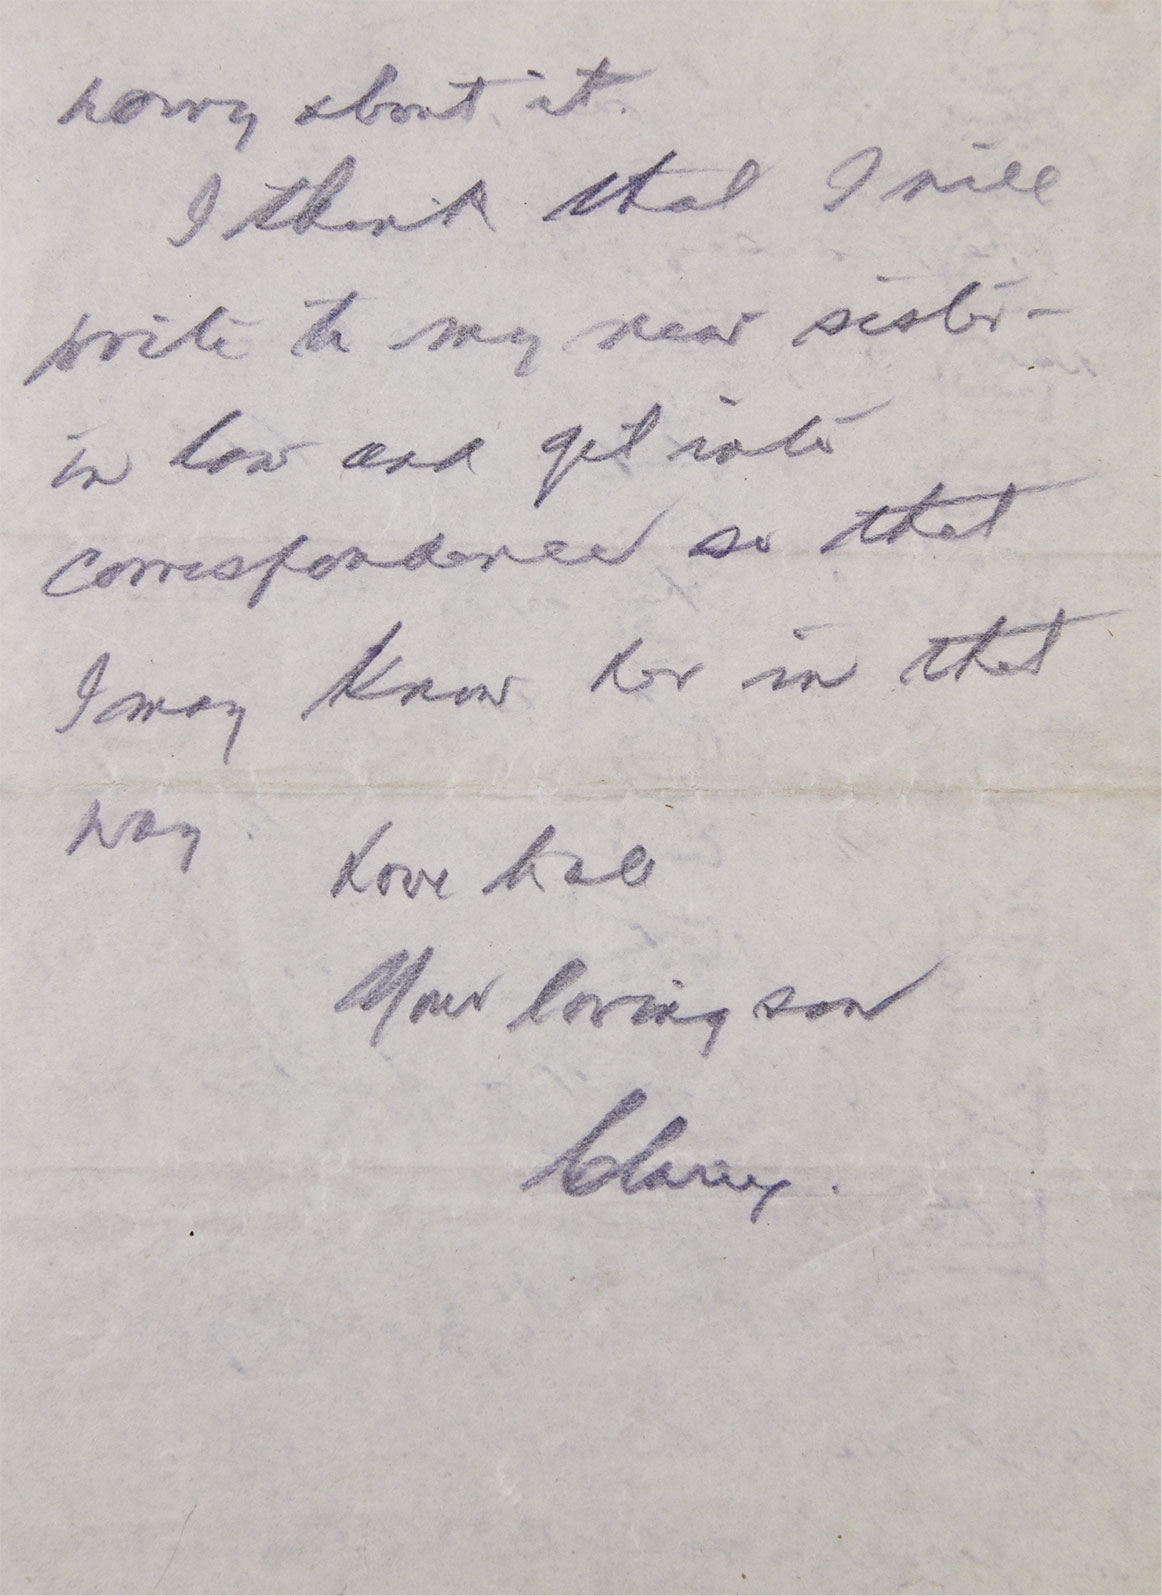 worry about it.
I think that I will
write to my new sister-
in law and get into
correspondence so that
I may know her in that
way.
Love to all
Your loving son
Clarey.